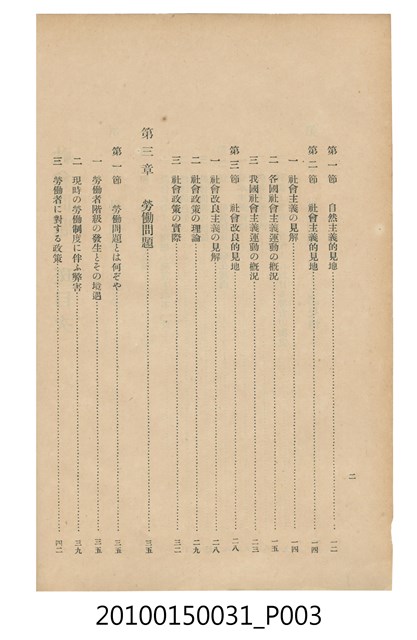 第一節　自然主義的見地……一二
第二節　社會主義的見地……一四
一　社會主義の見解……一四
二　各國社會主義運動の概況……一五
三　我國社會主義運動の概況……二三
第三節　社會改良的見地……二八
一　社會改良主義の見解……二八
二　社會政策の理論……二九
三　社會政策の實際……三二
第三章　勞働問題……三五
第一節　勞働問題とは何ぞや……三五
一　勞働者階級の發生とその境遇……三五
二　現時の勞働制度に伴ふ弊害……三九
三　勞働者に對する政策……四二
二
20100150031_P003